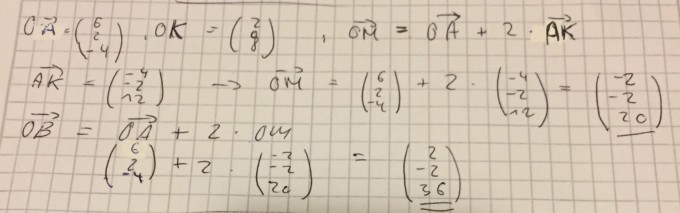 OA = (6 2 -4), OK = (2 0 8), OM = OA + 2 · AK
AK = (-4 -2 12) → OM = (6 2 -4) + 2 · (-4 -2 12) = (-2 -2 20)
OB = OA + 2 · OM
(6 2 -4) + 2 · (-2 -2 20) = (2 -2 36)